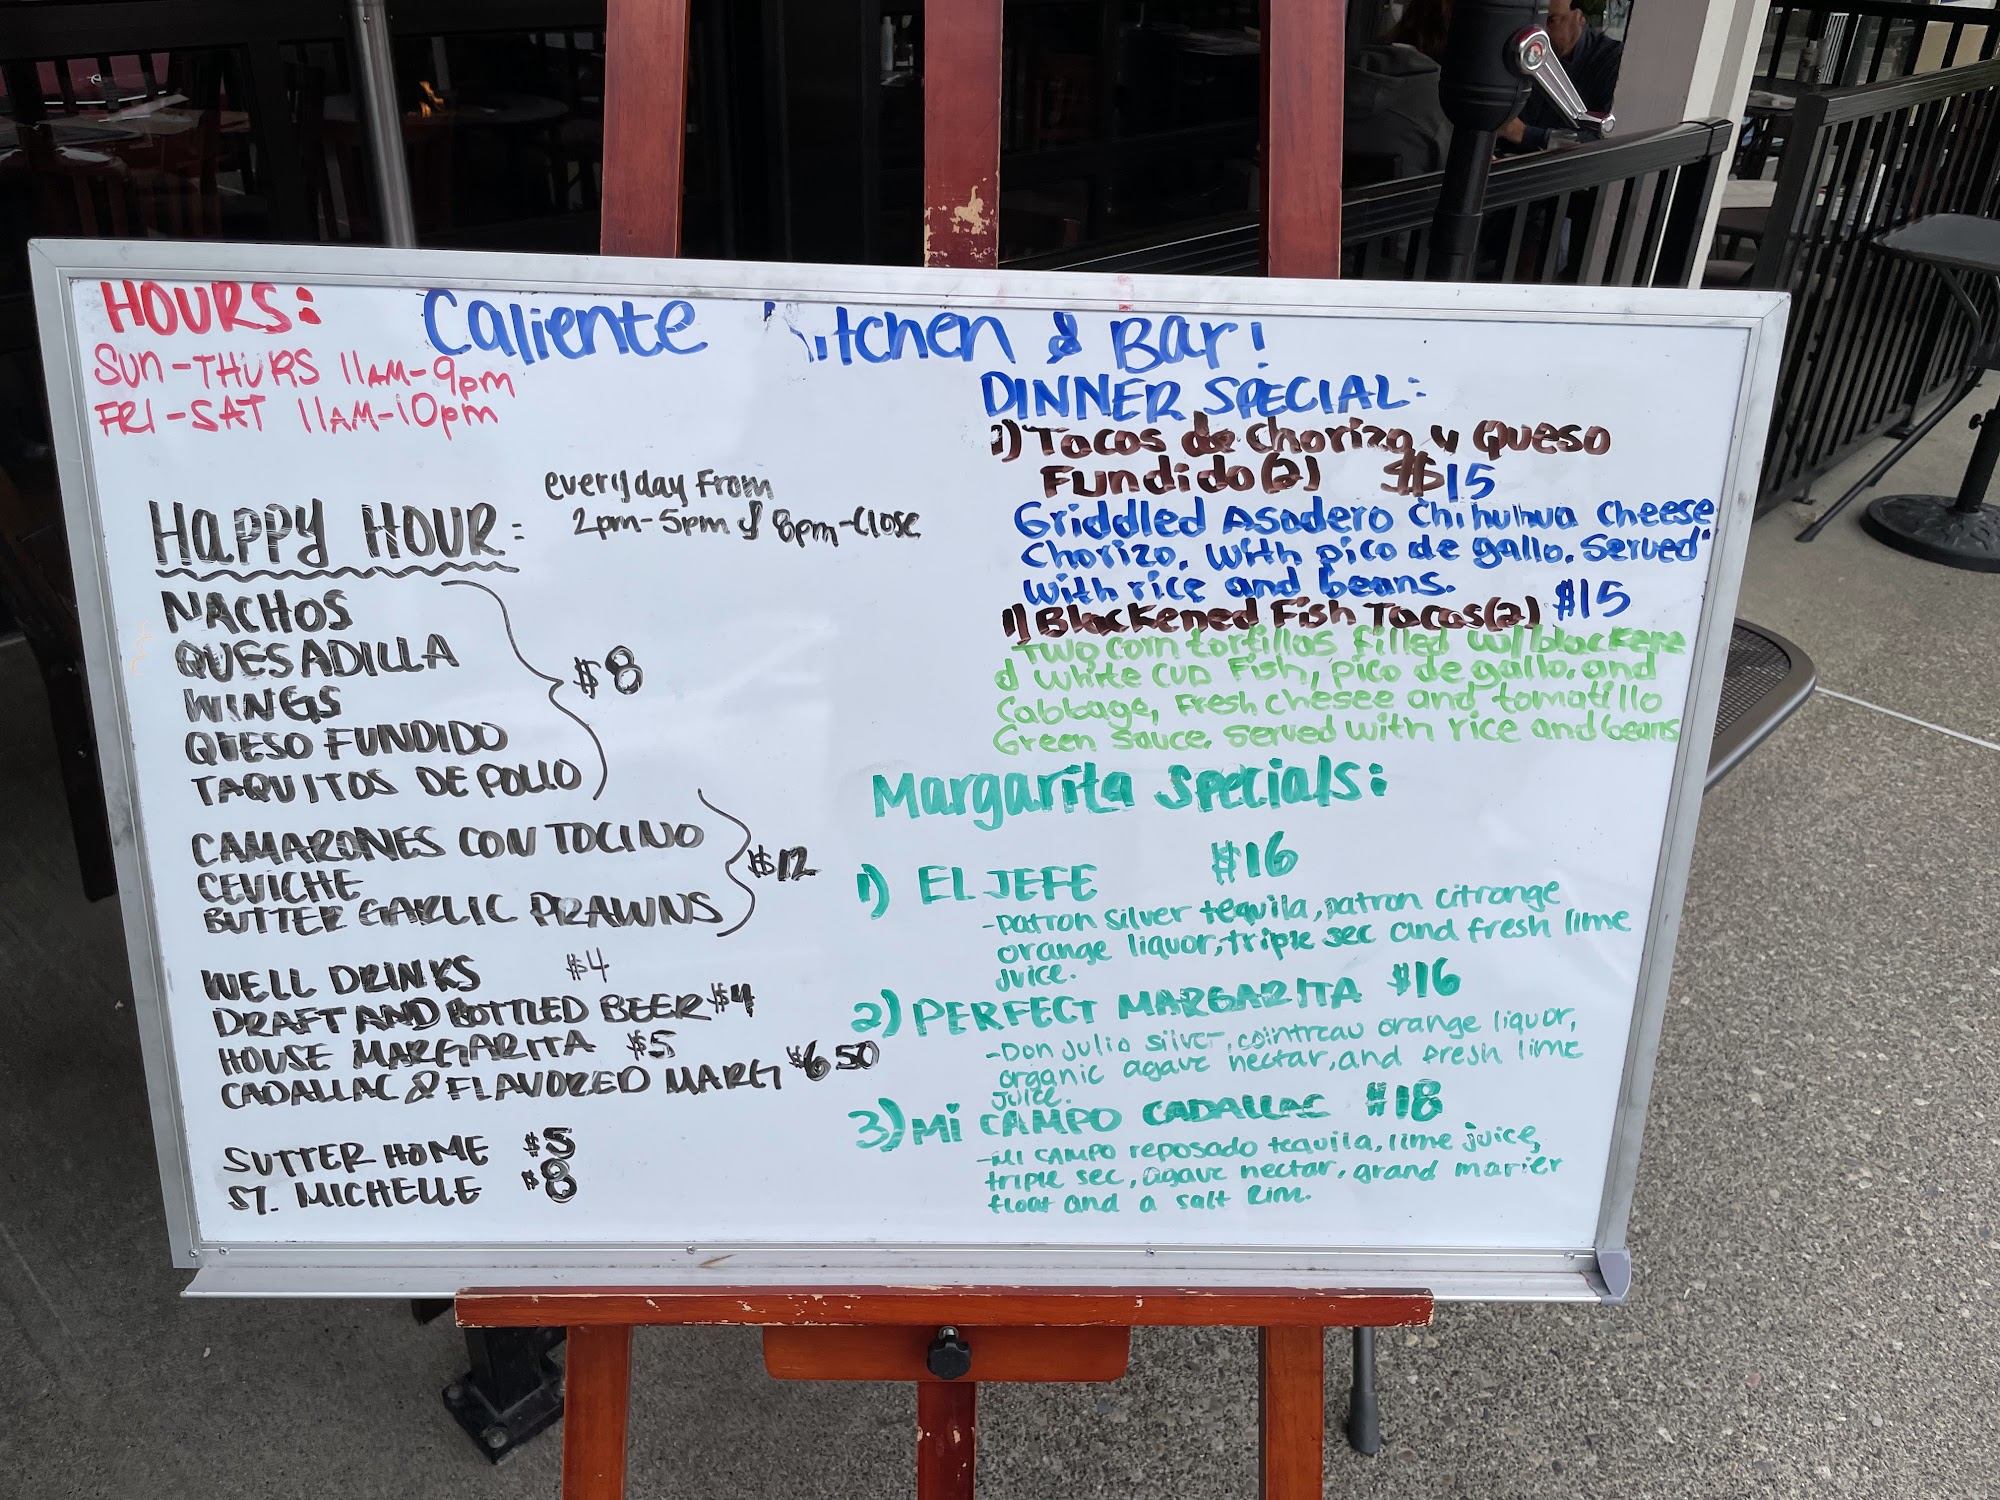 HOURS:
SUN-THURS 11AM-9pm
FRI-SAT 11AM-10pm
Caliente itchen & Bar!
HAPPY HOUR:
everyday From
2pm-5pm & 8pm-Close
NACHOS
QUESADILLA
WINGS
QUESO FUNDIDO
TAQUITOS DE POLLO
$8
CAMARONES CON TOCINO
CEVICHE
BUTTER GARLIC PRAWNS
$12
WELL DRINKS $4
DRAFT AND BOTTLED BEER $4
HOUSE MARGARITA $5
CADALLAC & FLAVORED MARG $6.50
SUTTER HOME $5
ST. MICHELLE $8
DINNER SPECIAL:
1) Tacos de Chorizo y Queso
Fundido(2) $15
Griddled Asadero Chihuhua cheese
Chorizo, with pico de gallo. Served
with rice and beans.
1) Blackened Fish Tacos(2) $15
Two corn tortillas filled w/blackene
d white CUD Fish, pico de gallo, and
Cabbage, Fresh chesee and tomatillo
Green sauce. served with rice and beans
Margarita Specials:
1) EL JEFE $16
-patron silver tequila, patron citrange
orange liquor, triple sec and fresh lime
juice.
2) PERFECT MARGARITA $16
-Don julio silver, cointreau orange liquor,
organic agave nectar, and fresh lime
juice.
3) Mi CAMPO CADALLAC $18
-Mi CAMPO reposado tequila, lime juice,
triple sec, agave nectar, grand marier
float and a salt rim.